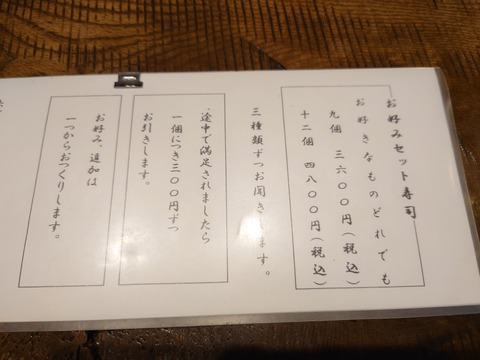 お好みセット寿司
お好きなものどれでも
九個 三六〇〇円(税込)
十二個 四八〇〇円(税込)
三種類ずつお聞きします。
途中で満足されましたら
一個につき三〇〇円ずつ
お引きします。
お好み、追加は
一つからおつくりします。